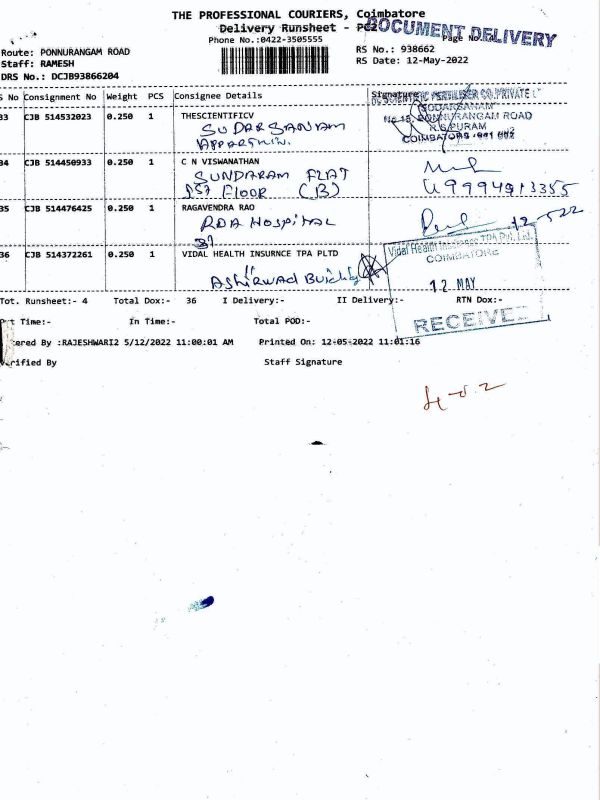 THE PROFESSIONAL COURIERS, Coimbatore
DOCUMENT DELIVERY
Delivery Runsheet - PC2
Page No.
Phone No.:0422-3505555
Route: PONNURANGAM ROAD
RS No.: 938662
Staff: RAMESH
RS Date: 12-May-2022
DRS No.: DCJB93866204
S No Consignment No Weight PCS Consignee Details Signature
33 CJB 514532023 0.250 1 THESCIENTIFICV
SUDARSANAM
PERTILISER CO.PRIVATE
SUDARSANAM
No 15, PONNURANGAM ROAD
R.S.PURAM
COIMBATORE-641 002
34 CJB 514450933 0.250 1 C N VISWANATHAN
SUNDARAM FLAT
1ST FLOOR (B)
35 CJB 514476425 0.250 1 RAGAVENDRA RAO
RDA HOSPITAL
36 CJB 514372261 0.250 1 VIDAL HEALTH INSURNCE TPA PLTD
Ashirwad Building
Vidal Health Insurance TPA Pvt. Ltd.
COIMBATORE
12 MAY
RECEIVED
Tot. Runsheet:- 4 Total Dox:- 36 I Delivery:- II Delivery:- RTN Dox:-
Time:- In Time:- Total POD:-
tered By :RAJESHWARI2 5/12/2022 11:00:01 AM Printed On: 12-05-2022 11:01:16
Verified By Staff Signature